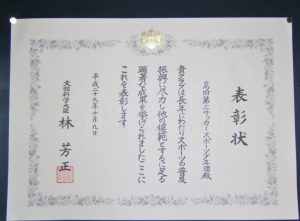 表彰状
第三サッカースポーツ少年団殿
貴クラブは長年にわたりスポーツの普及
振興に尽力し他の模範とするに足る
顕著な成果を挙げられましたここに
これを表彰します
平成二十九年十月九日
文部科学大臣
林芳正